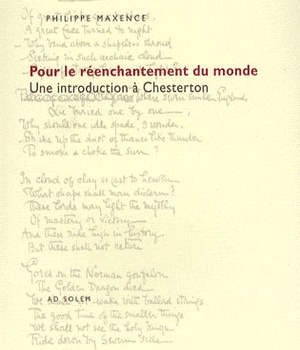 PHILIPPE MAXENCE
A great face turned to night
Why bend above a shapeless shroud
Seeking in such archaic cloud
Pour le réenchantement du monde
Une introduction à Chesterton
Where seven sunken Englands
Lie buried one by one,
Why should one idle spade, I wonder,
Shake up the dust of thanes like thunder
To smoke & choke the sun?
In cloud of clay so cast to heaven
What shape shall man discern?
These lords may light the mystery
Of mastery or victory
And these ride high in history
But these shall not return
Gored on the Norman gonfalon
The Golden Dragon died
AD SOLEM
We wake with ballad strings
The good time of the smaller things
We shall not see the holy kings
Ride down by Severn side